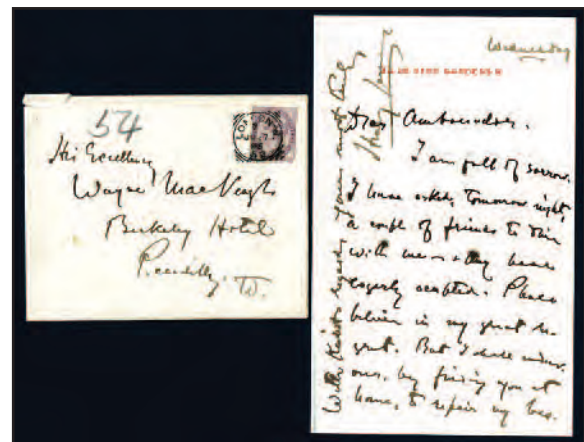 54
His Excellency
Wayne MacVeagh
Berkeley Hotel
Piccadilly. W.
Wednesday
Dear Ambassador.
I am full of sorrow.
I have asked, tomorrow night,
a couple of friends to dine
with me & they have
eagerly accepted. Please
believe in my great re-
gret. But I shall endeav-
our, by finding you at
home, to repair my loss.
With kindest regards yours most truly